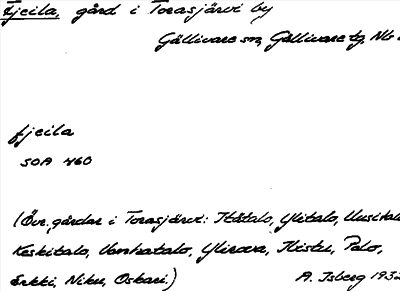 Fjeila, gård i Torasjärvi by
Gällivare sn, Gällivare tg. Nb
fjeila
SOA 460
(Övr. gårdar i Torasjärvi: Itätalo, Ylitalo, Uusitalo
Keskitalo, Vanhatalo, Ylirova, Palo,
Erkki, Niku, Oskari.) A. Isberg 1932